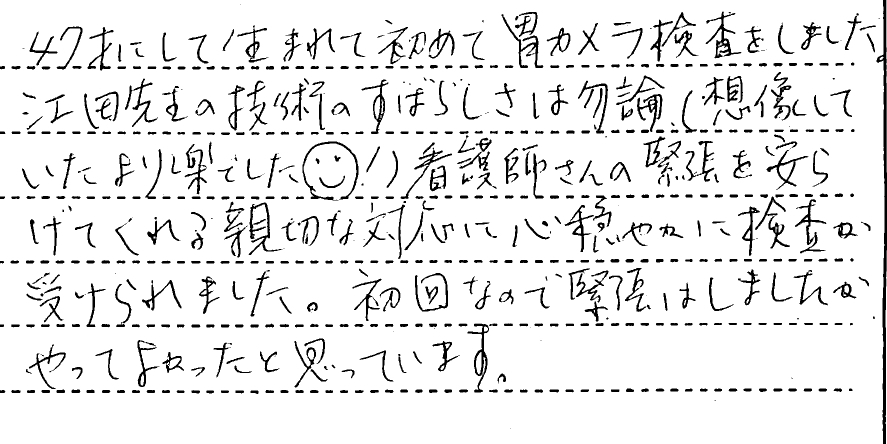 47才にして生まれて初めて胃カメラ検査をしました。
江田先生の技術のすばらしさは勿論、(想像して
いたより楽でした☺!)看護師さんの緊張を安ら
げてくれる親切な対応に心穏やかに検査が
受けられました。初回なので緊張はしましたが
やってよかったと思っています。